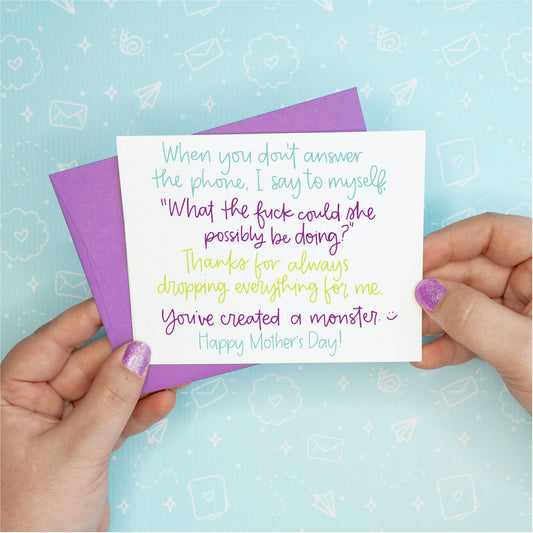 When you don't answer
the phone, I say to myself,
"What the fuck could she
possibly be doing?"
Thanks for always
dropping everything for me.
You've created a monster. :)
Happy Mother's Day!